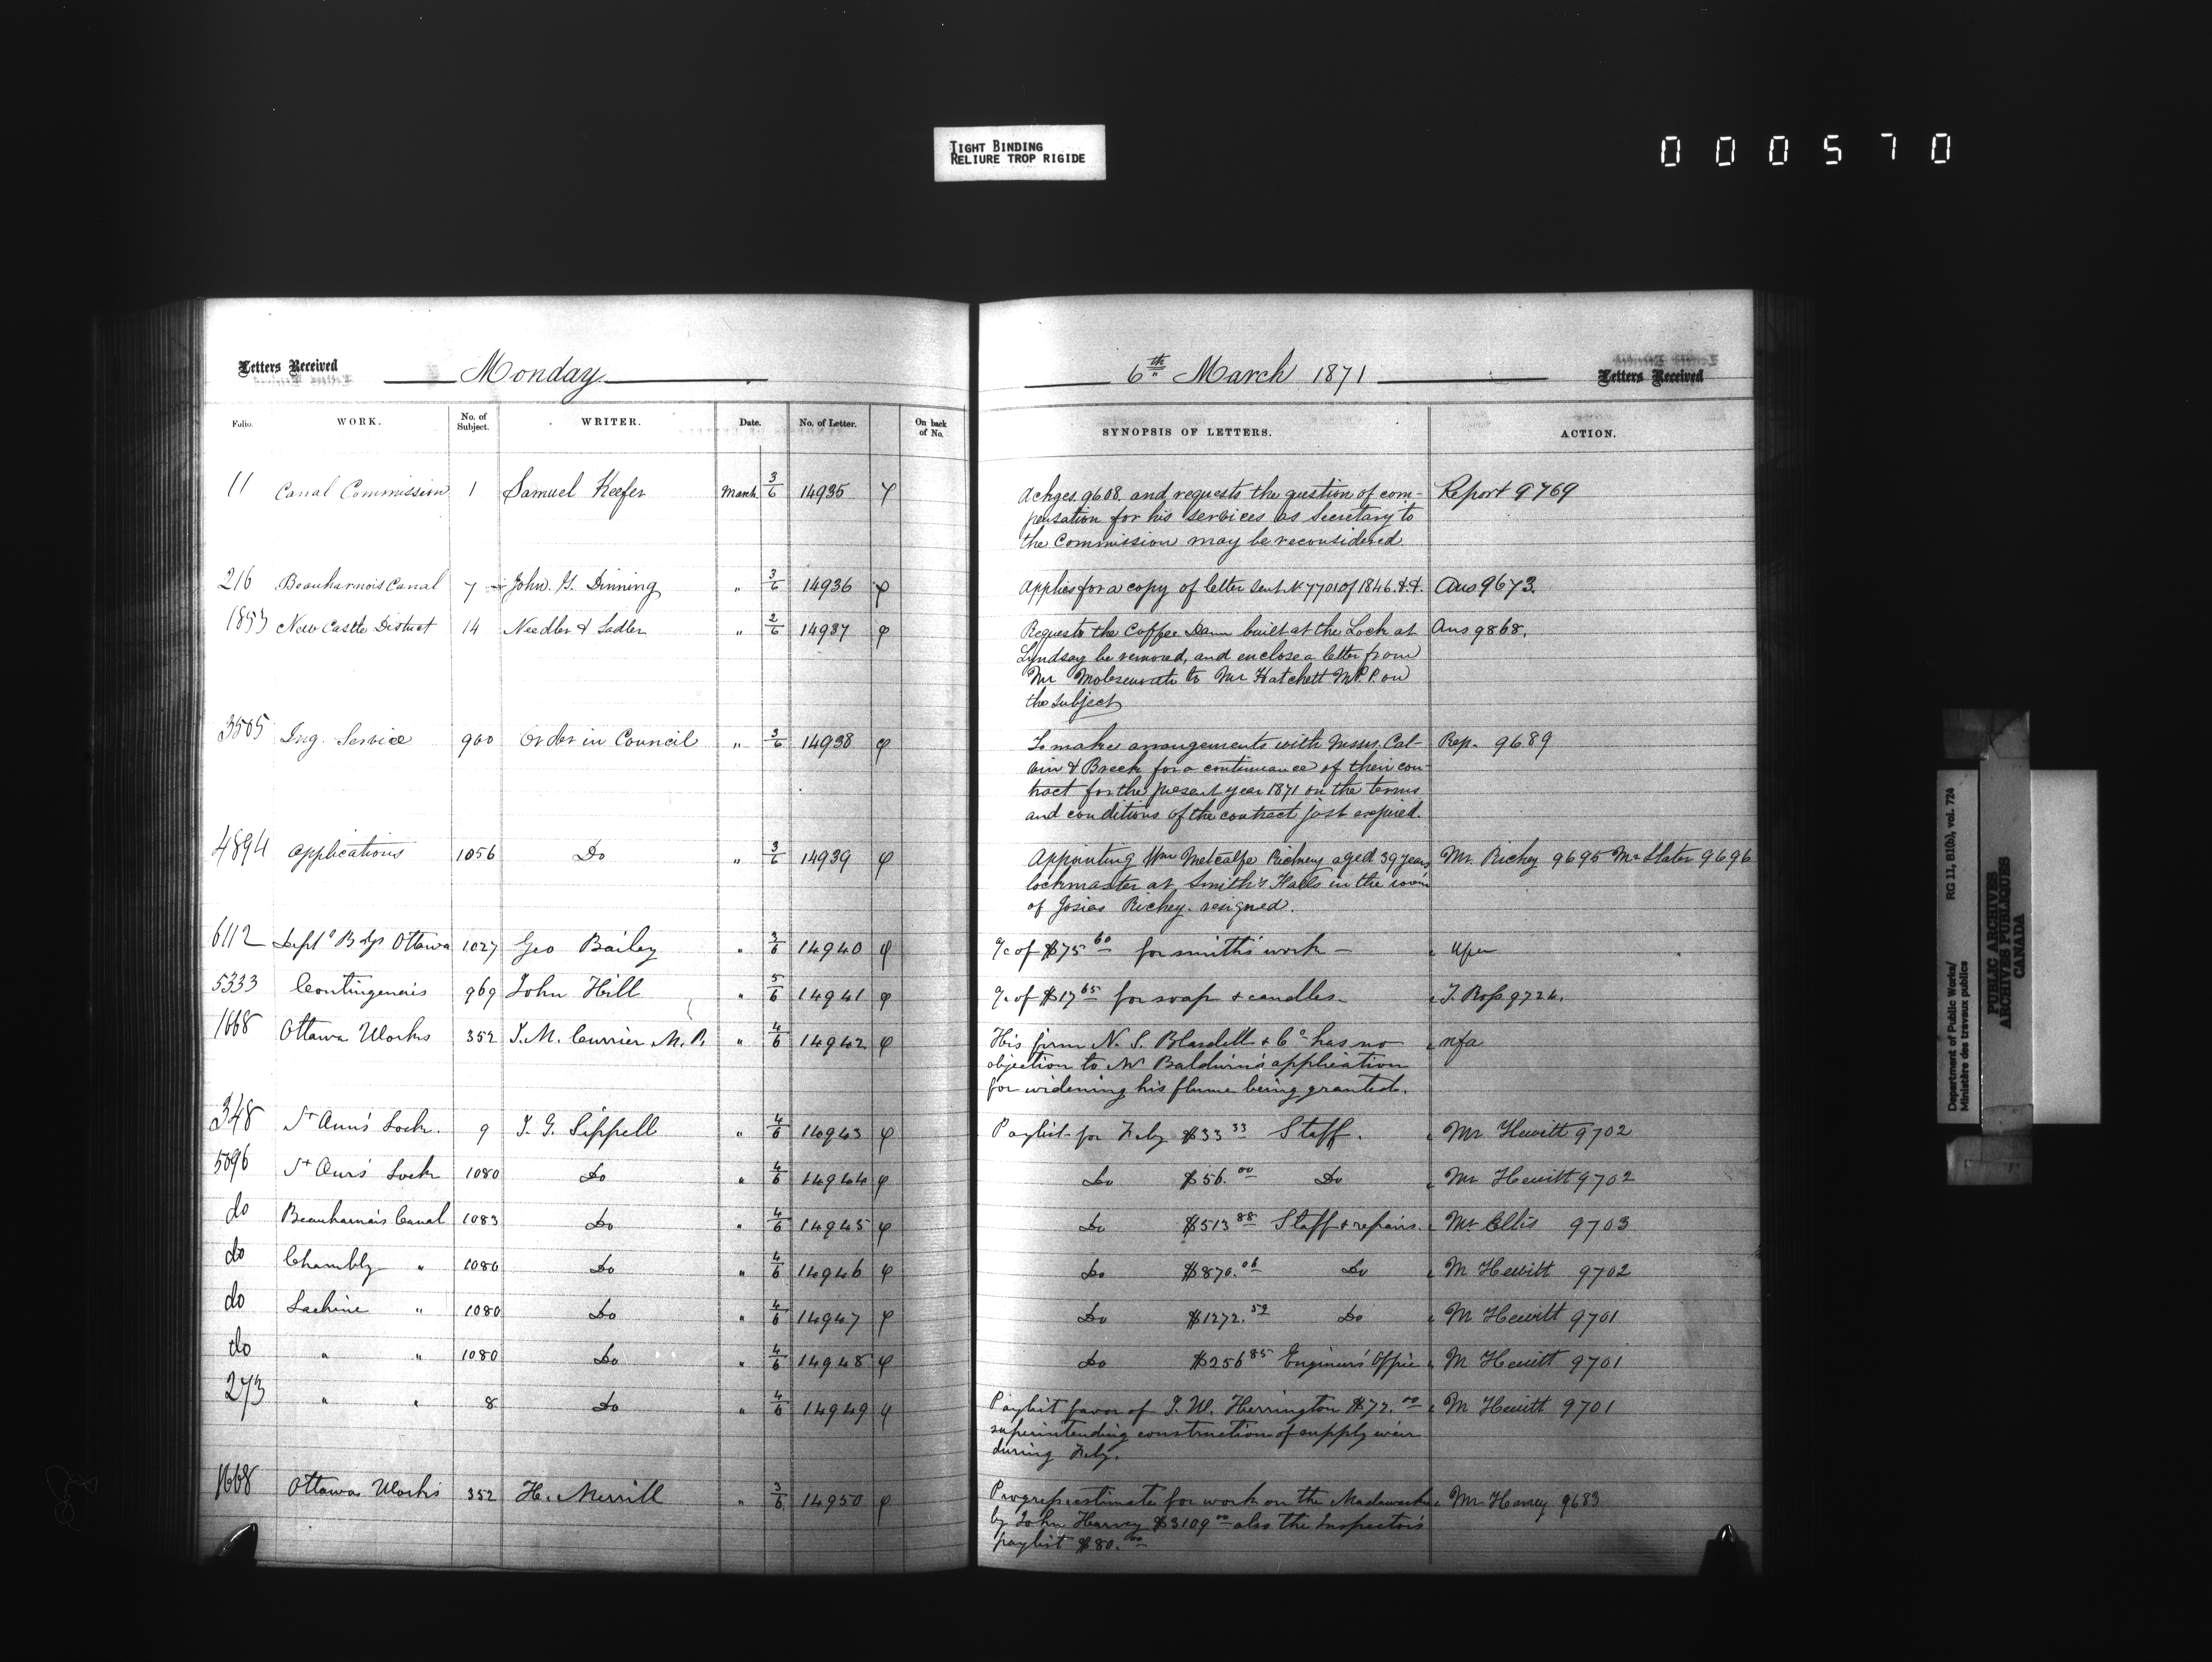 TIGHT BINDING
RELIURE TROP RIGIDE
000570
Letters Received Monday
Folio. WORK. No. of Subject. WRITER. Date. No. of Letter. On back of No.
11 Canal Commission 1 Samuel Keefer March 3/6 14935
216 Beauharnois Canal 7 John. G. Dinning " 3/6 14936
1853 New Castle District 14 Needler & Sadler " 2/6 14937
3505 Ing. Service 900 Order in Council " 3/6 14938
4894 Applications 1056 Do " 3/6 14939
6112 Deptl Bdgs Ottawa 1027 Geo Bailey " 3/6 14940
5333 Contingencies 969 John Hill " 5/6 14941
1668 Ottawa Works 352 J. M. Currier M. P. " 4/6 14942
348 St Ann's Lock. 9 J. G. Sippell " 4/6 14943
5096 St Ann's Lock 1080 Do " 4/6 14944
do Beauharnois Canal 1083 Do " 4/6 14945
do Chambly " 1080 Do " 4/6 14946
do Lachine " 1080 Do " 4/6 14947
do " " 1080 Do " 4/6 14948
273 " " 8 Do " 4/6 14949
1668 Ottawa Works 352 H. Merrill " 3/6 14950
6th March 1871 Letters Received
SYNOPSIS OF LETTERS. ACTION.
Ackges 9608. and requests the question of com- Report 9769
pensation for his services as Secretary to
the Commission may be reconsidered
Applies for a copy of letter sent No 7701 of 1846. Ans 9673.
Requests the Coffee Dam built at the Lock at Ans 9868.
Lyndsay be removed, and enclose a letter from
Mr to Mr Hatchett M.P.P. on
the subject
To make arrangements with Messrs. Cal- Rep. 9689
vin & Breck for a continuance of their con-
tract for the present year 1871 on the terms
and conditions of the contract just expired.
Appointing Wm Metcalfe Richey aged 39 years Mr. Richey 9695 Mr Slater 9696
lockmaster at Smith's Falls in the room
of Josias Richey. resigned.
a/c of $75 60 for smiths work –
a/c of $17 65 for soap & candles – J. Ross 9724.
His firm N. S. Blasdell & Co has no nfa
objection to Mr Baldwin's application
for widening his flume being granted.
Paylist for Feby $33 33 Staff. Mr Hewitt 9702
Do $56. 00 Do Mr Hewitt 9702
Do $513 88 Staff & repairs. Mr Ellis 9703
Do $870. 06 Do M Hewitt 9702
Do $1272. 59 Do M Hewitt 9701
Do $256 85 Engineer's Office M Hewitt 9701
Paylist favor of J. W. Herrington $72. 00 M Hewitt 9701
superintending construction of supply weir
during Feby.
Progress estimate for work on the Madawaska Mr Harvey 9683
by John Harvey $3109 00 also the Inspector's
paylist $80. 00
Department of Public Works/ RG 11, B1(b), vol. 724
Ministère des travaux publics
PUBLIC ARCHIVES
ARCHIVES PUBLIQUES
CANADA